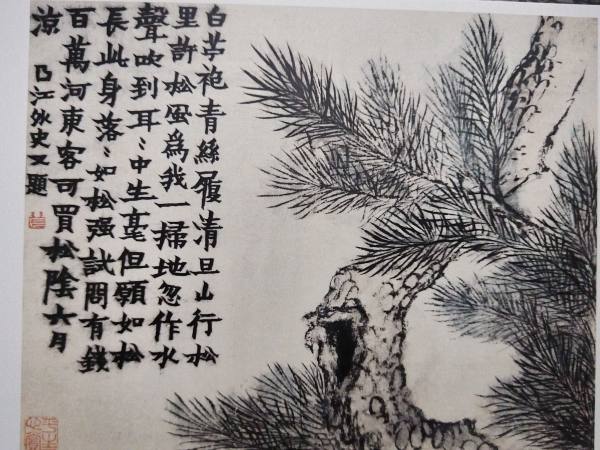 白苧袍青絲履清旦山行松
里許松風爲我一掃地忽作水
聲吹到耳〻中生毫但願如松
長此身落〻如松强試問有錢
百萬河東客可買松陰六月
涼
曲江外史又題